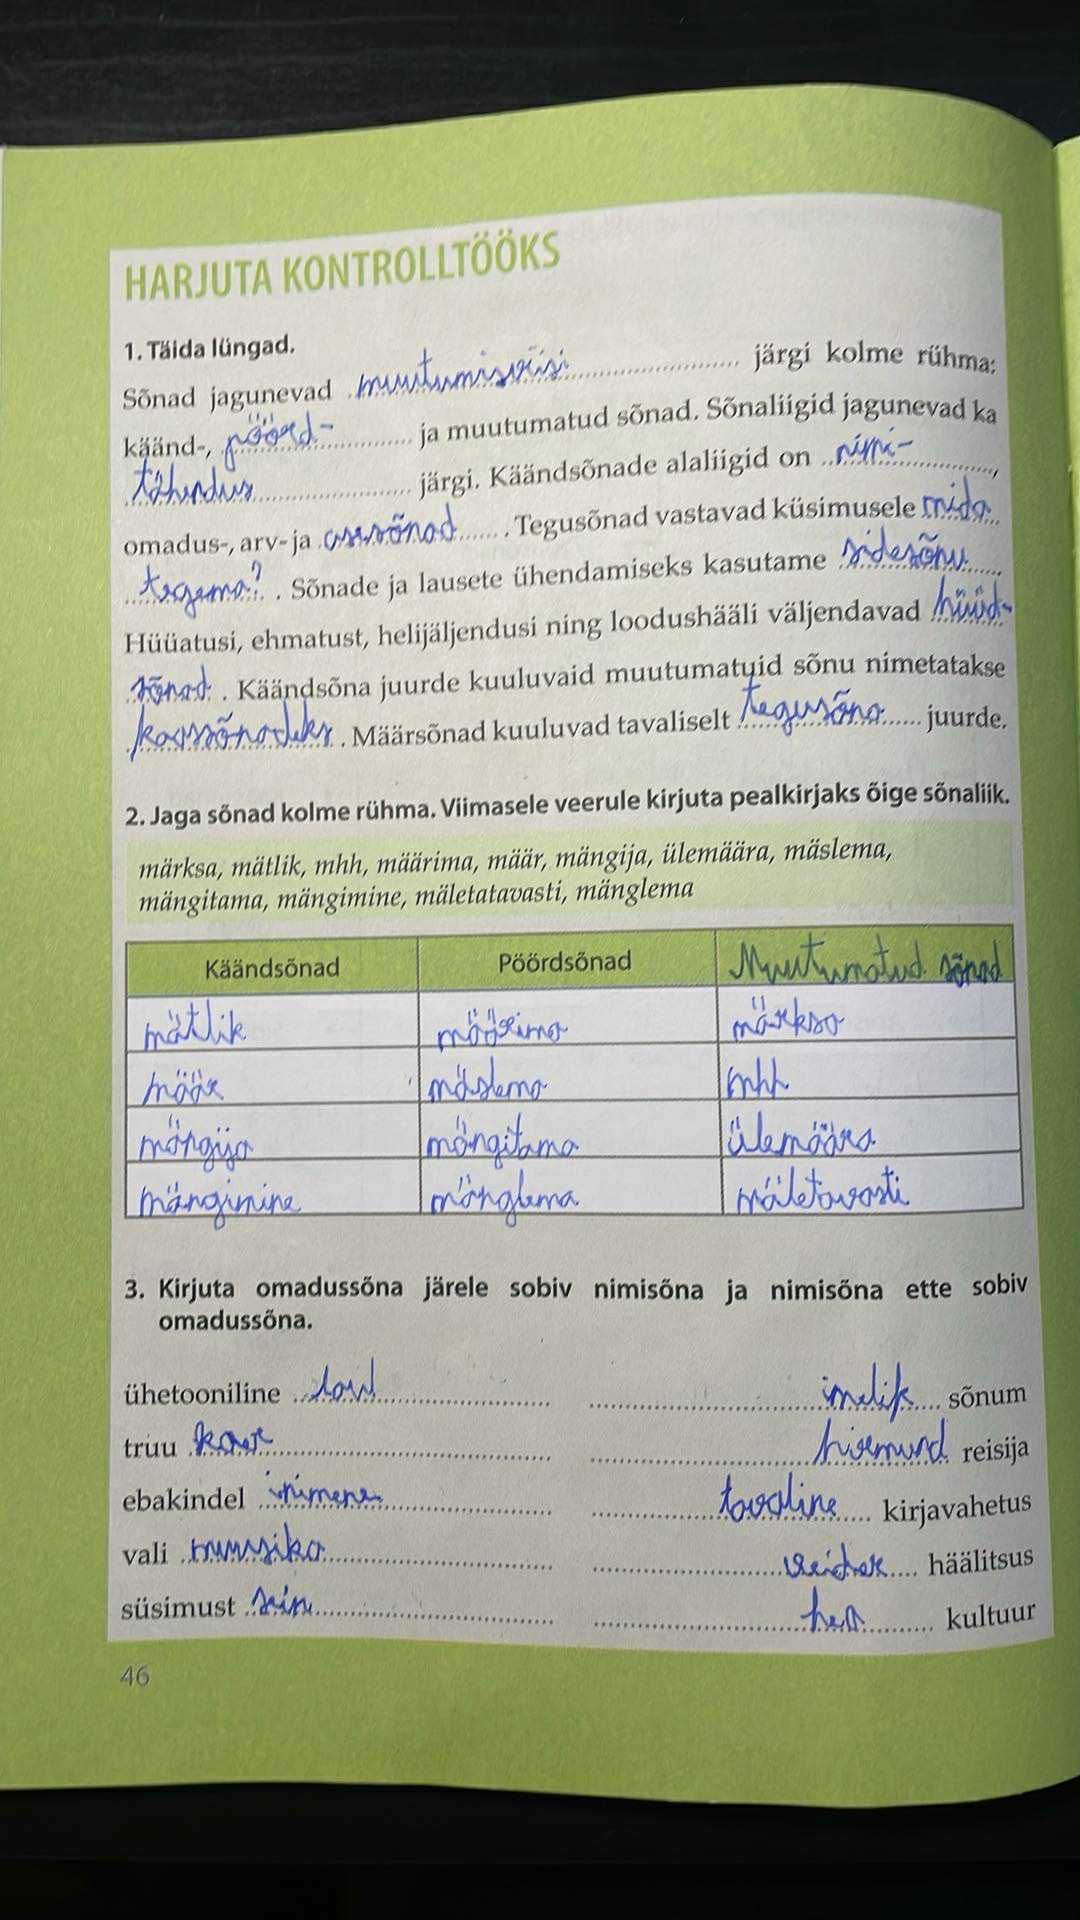 HARJUTA KONTROLLTÖÖKS
1. Täida lüngad.
Sõnad jagunevad muutumisviisi järgi kolme rühma:
käänd-, pöörd- ja muutumatud sõnad. Sõnaliigid jagunevad ka
tähendus järgi. Käändsõnade alaliigid on nimi-,
omadus-, arv- ja asesõnad. Tegusõnad vastavad küsimusele mida
tegema?. Sõnade ja lausete ühendamiseks kasutame sidesõnu.
Hüüatusi, ehmatust, helijäljendusi ning loodushääli väljendavad hüüd-
sõnad. Käändsõna juurde kuuluvaid muutumatuid sõnu nimetatakse
kaassõnadeks. Määrsõnad kuuluvad tavaliselt tegusõna juurde.
2. Jaga sõnad kolme rühma. Viimasele veerule kirjuta pealkirjaks õige sõnaliik.
märksa, mätlik, mhh, määrima, määr, mängija, ülemäära, mäslema,
mängitama, mängimine, mäletatavasti, mänglema
Käändsõnad Pöördsõnad Muutumatud sõnad
mätlik määrima märksa
määr mäslema mhh
mängija mängitama ülemäära
mängimine mänglema mäletavasti
3. Kirjuta omadussõna järele sobiv nimisõna ja nimisõna ette sobiv
omadussõna.
ühetooniline laul imelik sõnum
truu koer hirmund reisija
ebakindel inimene tavaline kirjavahetus
vali muusika veider häälitsus
süsimust sein hea kultuur
46